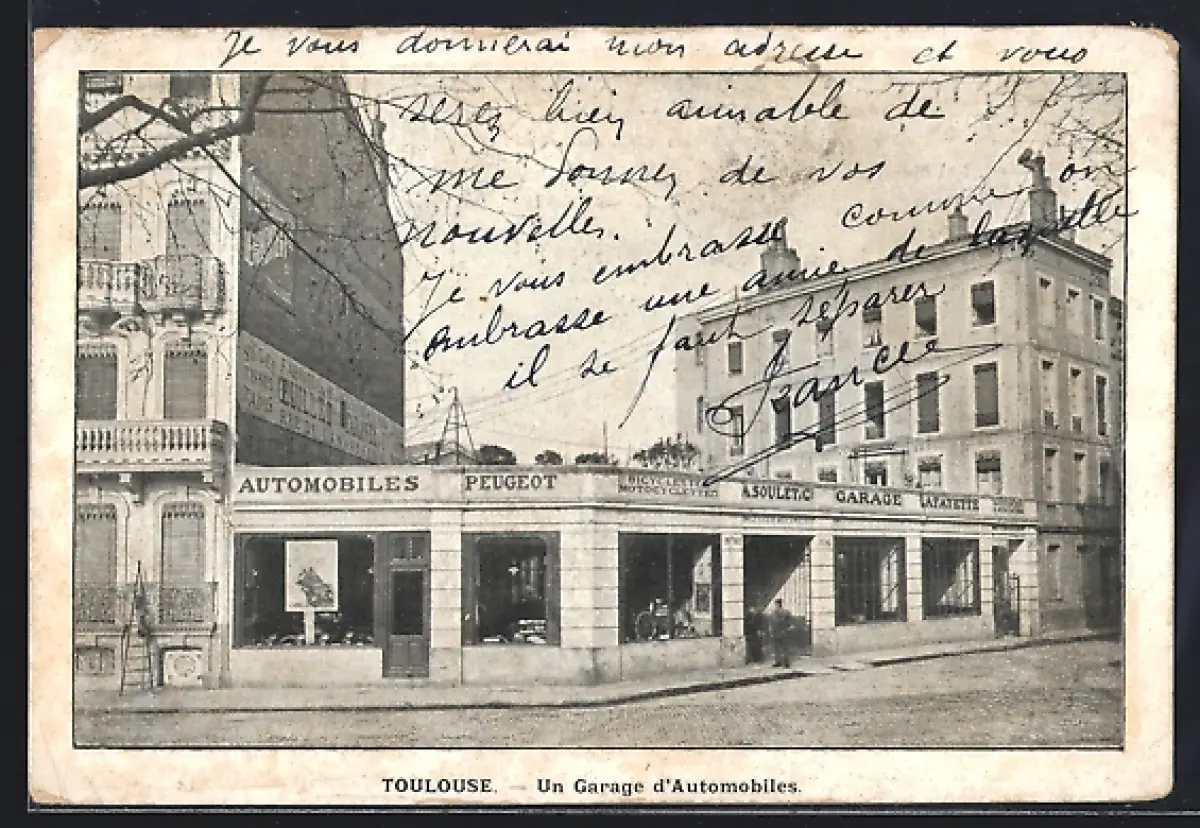 Je vous donnerai mon adresse et vous
serez bien aimable de
me donner de vos
nouvelles.
Je vous embrasse comme on
embrasse une amie de laquelle
il se faut séparer
France
AUTOMOBILES PEUGEOT BICYCLETTES
MOTOCYCLETTES A.SOULET & C GARAGE LAFAYETTE
TOULOUSE. — Un Garage d'Automobiles.